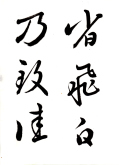 省飛白
乃致佳